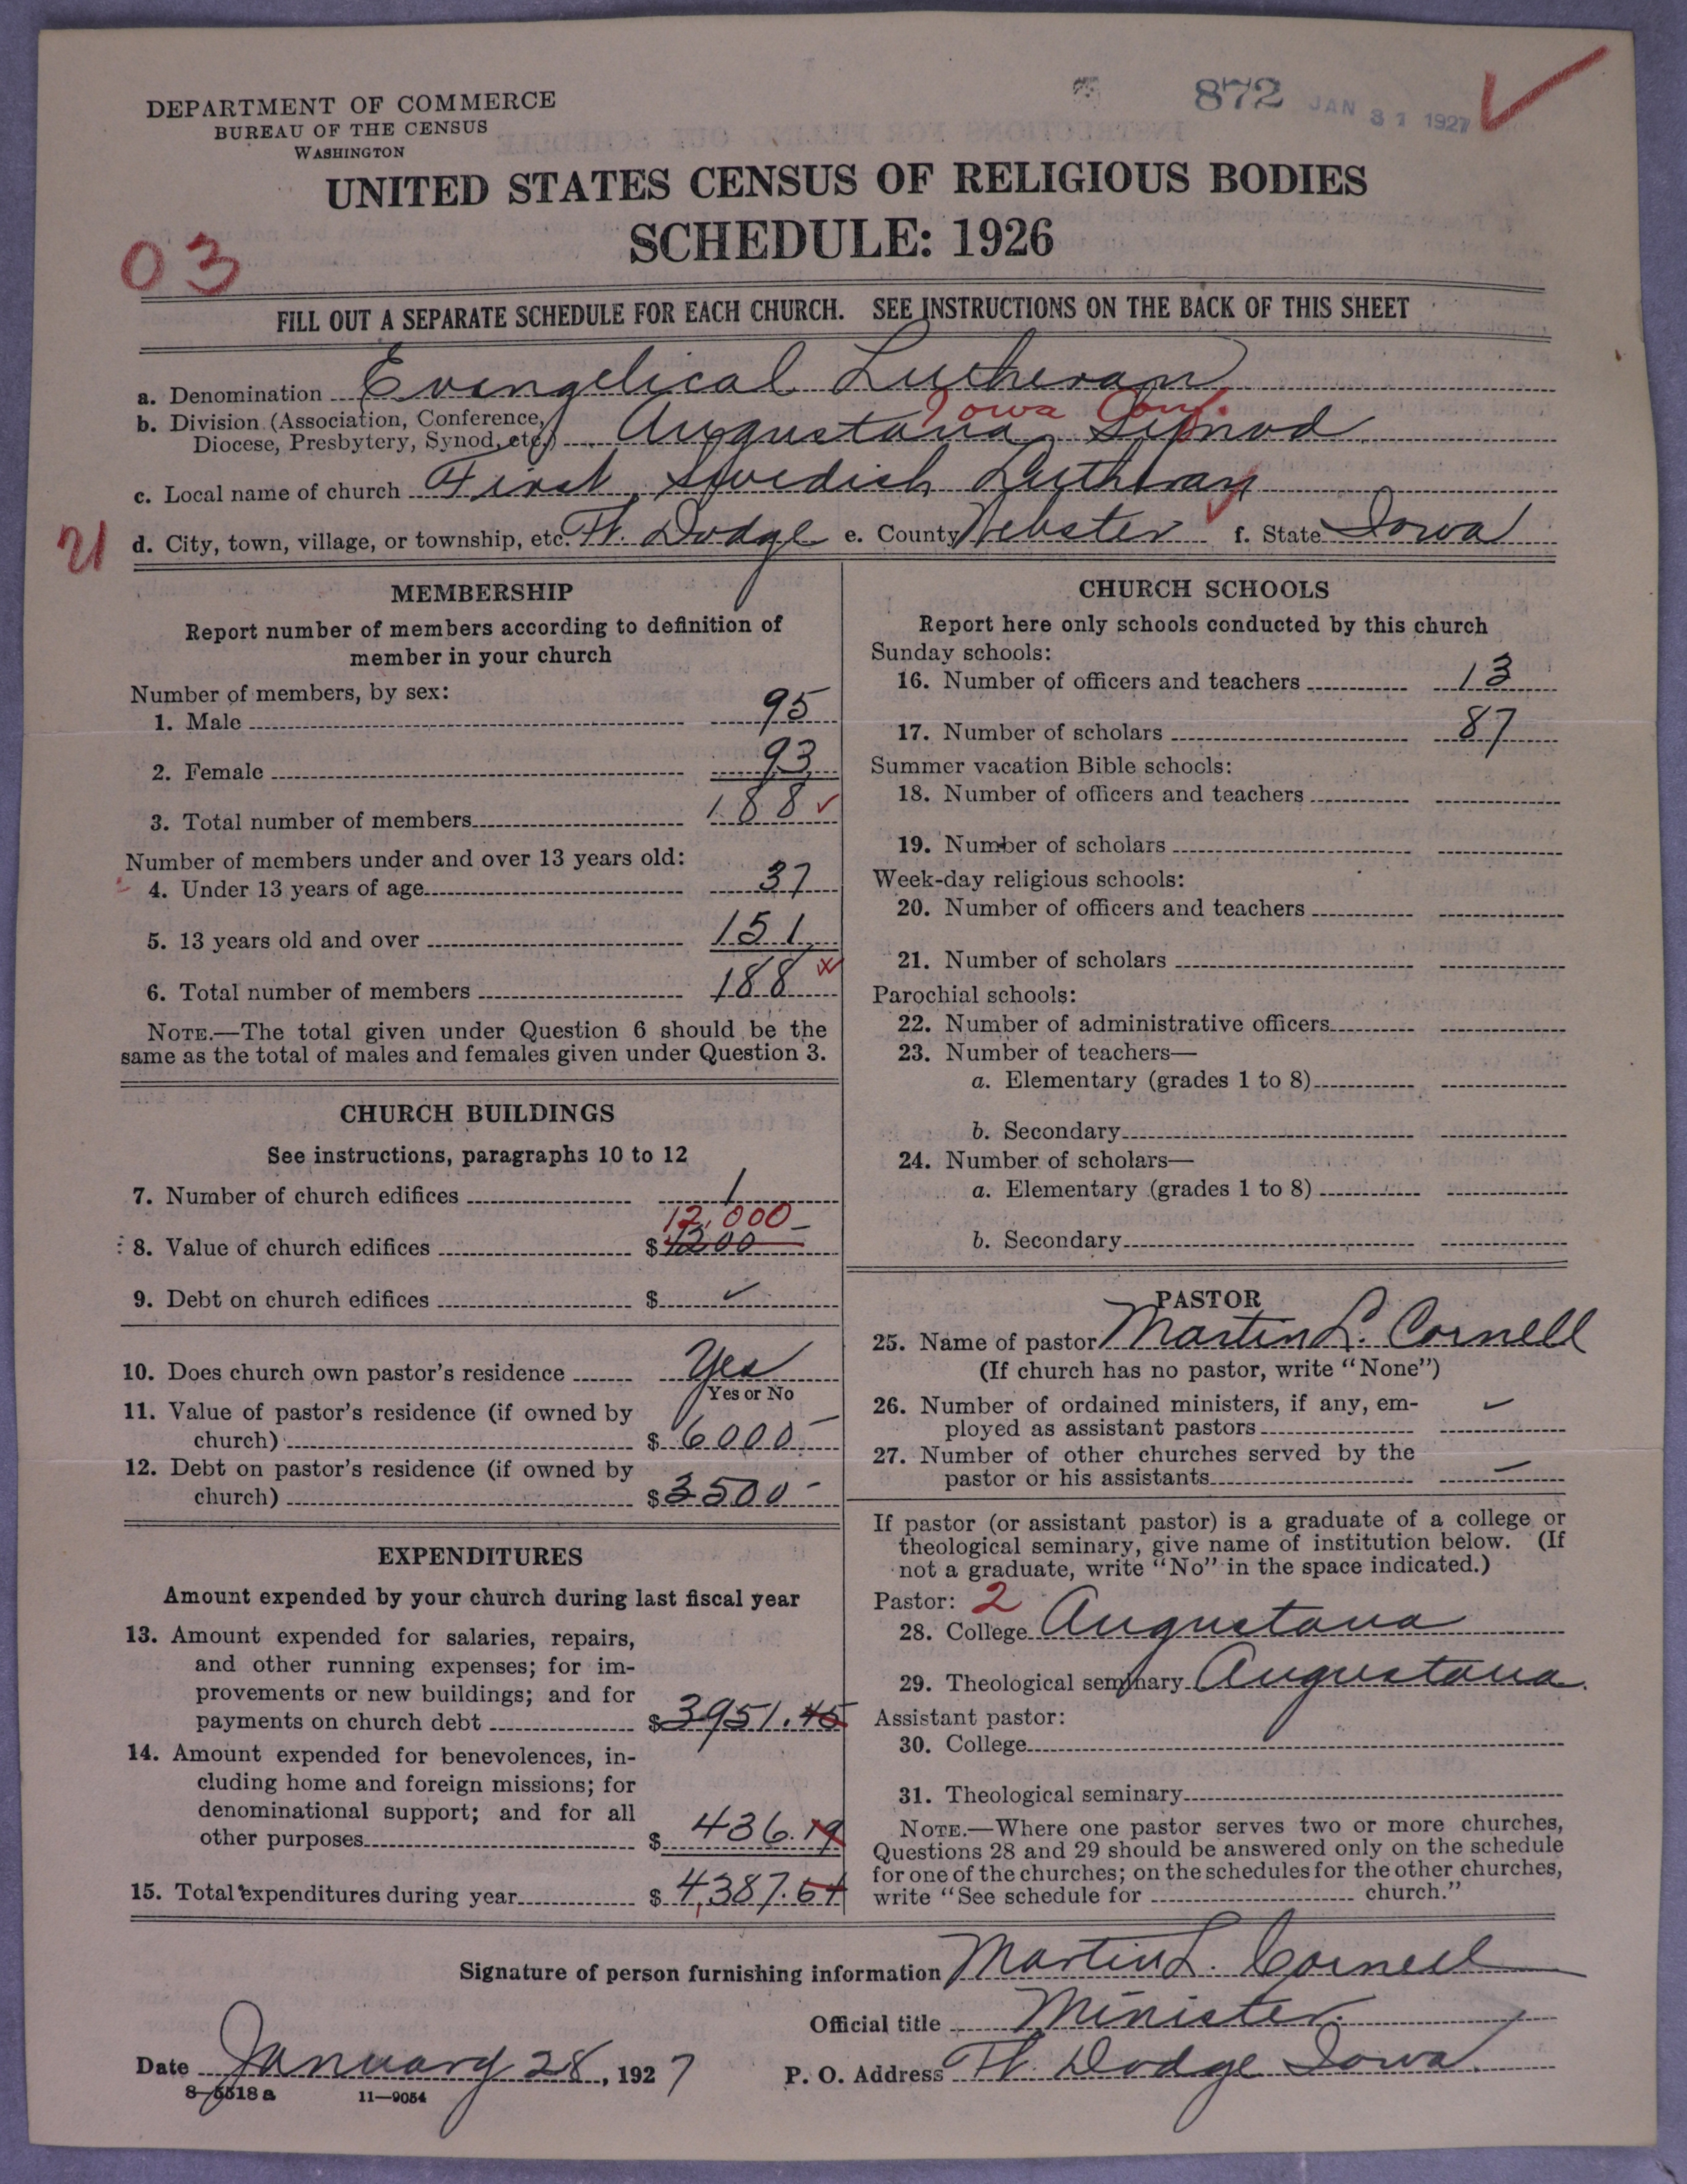 DEPARTMENT OF COMMERCE
BUREAU OF THE CENSUS
WASHINGTON
872 JAN 31 1927
UNITED STATES CENSUS OF RELIGIOUS BODIES
SCHEDULE: 1926
03
FILL OUT A SEPARATE SCHEDULE FOR EACH CHURCH. SEE INSTRUCTIONS ON THE BACK OF THIS SHEET
a. Denomination Evangelical Lutheran
Iowa Conf.
b. Division (Association, Conference,
Diocese, Presbytery, Synod, etc.) Augustana Synod
c. Local name of church First Swedish Lutheran
21 d. City, town, village, or township, etc. Ft. Dodge e. County Webster f. State Iowa
MEMBERSHIP
Report number of members according to definition of
member in your church
Number of members, by sex:
1. Male 95
2. Female 93
3. Total number of members 188
Number of members under and over 13 years old:
4. Under 13 years of age 37
5. 13 years old and over 151
6. Total number of members 188
NOTE.—The total given under Question 6 should be the
same as the total of males and females given under Question 3.
CHURCH BUILDINGS
See instructions, paragraphs 10 to 12
7. Number of church edifices 1
12,000–
8. Value of church edifices $ 1200
9. Debt on church edifices $
10. Does church own pastor's residence Yes
Yes or No
11. Value of pastor's residence (if owned by
church) $ 6000–
12. Debt on pastor's residence (if owned by
church) $ 3500–
EXPENDITURES
Amount expended by your church during last fiscal year
13. Amount expended for salaries, repairs,
and other running expenses; for im-
provements or new buildings; and for
payments on church debt $ 3951.45
14. Amount expended for benevolences, in-
cluding home and foreign missions; for
denominational support; and for all
other purposes $ 436.19
15. Total expenditures during year $ 4,387.64
CHURCH SCHOOLS
Report here only schools conducted by this church
Sunday schools:
16. Number of officers and teachers 13
17. Number of scholars 87
Summer vacation Bible schools:
18. Number of officers and teachers
19. Number of scholars
Week-day religious schools:
20. Number of officers and teachers
21. Number of scholars
Parochial schools:
22. Number of administrative officers
23. Number of teachers—
a. Elementary (grades 1 to 8)
b. Secondary
24. Number of scholars—
a. Elementary (grades 1 to 8)
b. Secondary
PASTOR
25. Name of pastor Martin L. Cornell
(If church has no pastor, write "None")
26. Number of ordained ministers, if any, em-
ployed as assistant pastors
27. Number of other churches served by the
pastor or his assistants –
If pastor (or assistant pastor) is a graduate of a college or
theological seminary, give name of institution below. (If
not a graduate, write "No" in the space indicated.)
Pastor: 2
28. College Augustana
29. Theological seminary Augustana
Assistant pastor:
30. College
31. Theological seminary
NOTE.—Where one pastor serves two or more churches,
Questions 28 and 29 should be answered only on the schedule
for one of the churches; on the schedules for the other churches,
write "See schedule for church."
Signature of person furnishing information Martin L. Cornell
Official title Minister
Date January 28, 1927 P. O. Address Ft. Dodge Iowa
8-5518 a 11—9054